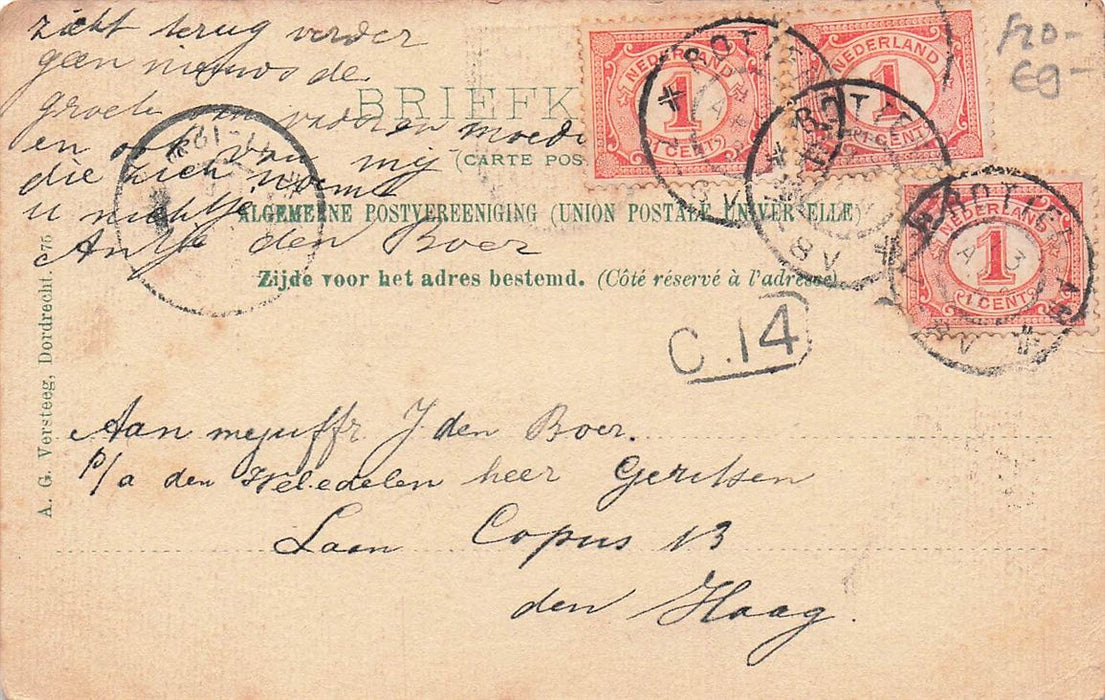 zicht terug verder
geen nieuws de
groete van vader en moeder
en ook van mij
die zich noemt
u nichtje
Antje den Boer
BRIEFK
(CARTE POS
ALGEMEENE POSTVEREENIGING (UNION POSTALE UNIVERSELLE)
Zijde voor het adres bestemd. (Côté réservé à l'adresse)
NEDERLAND
1
1 CENT
NEDERLAND
1
CENT
NEDERLAND
1
1 CENT
f20-
69-
C.14
Aan mejuffr J. den Boer.
p/a den Weledelen heer Gerritsen
Laan Copus 13
den Haag.
A. G. Versteeg, Dordrecht.